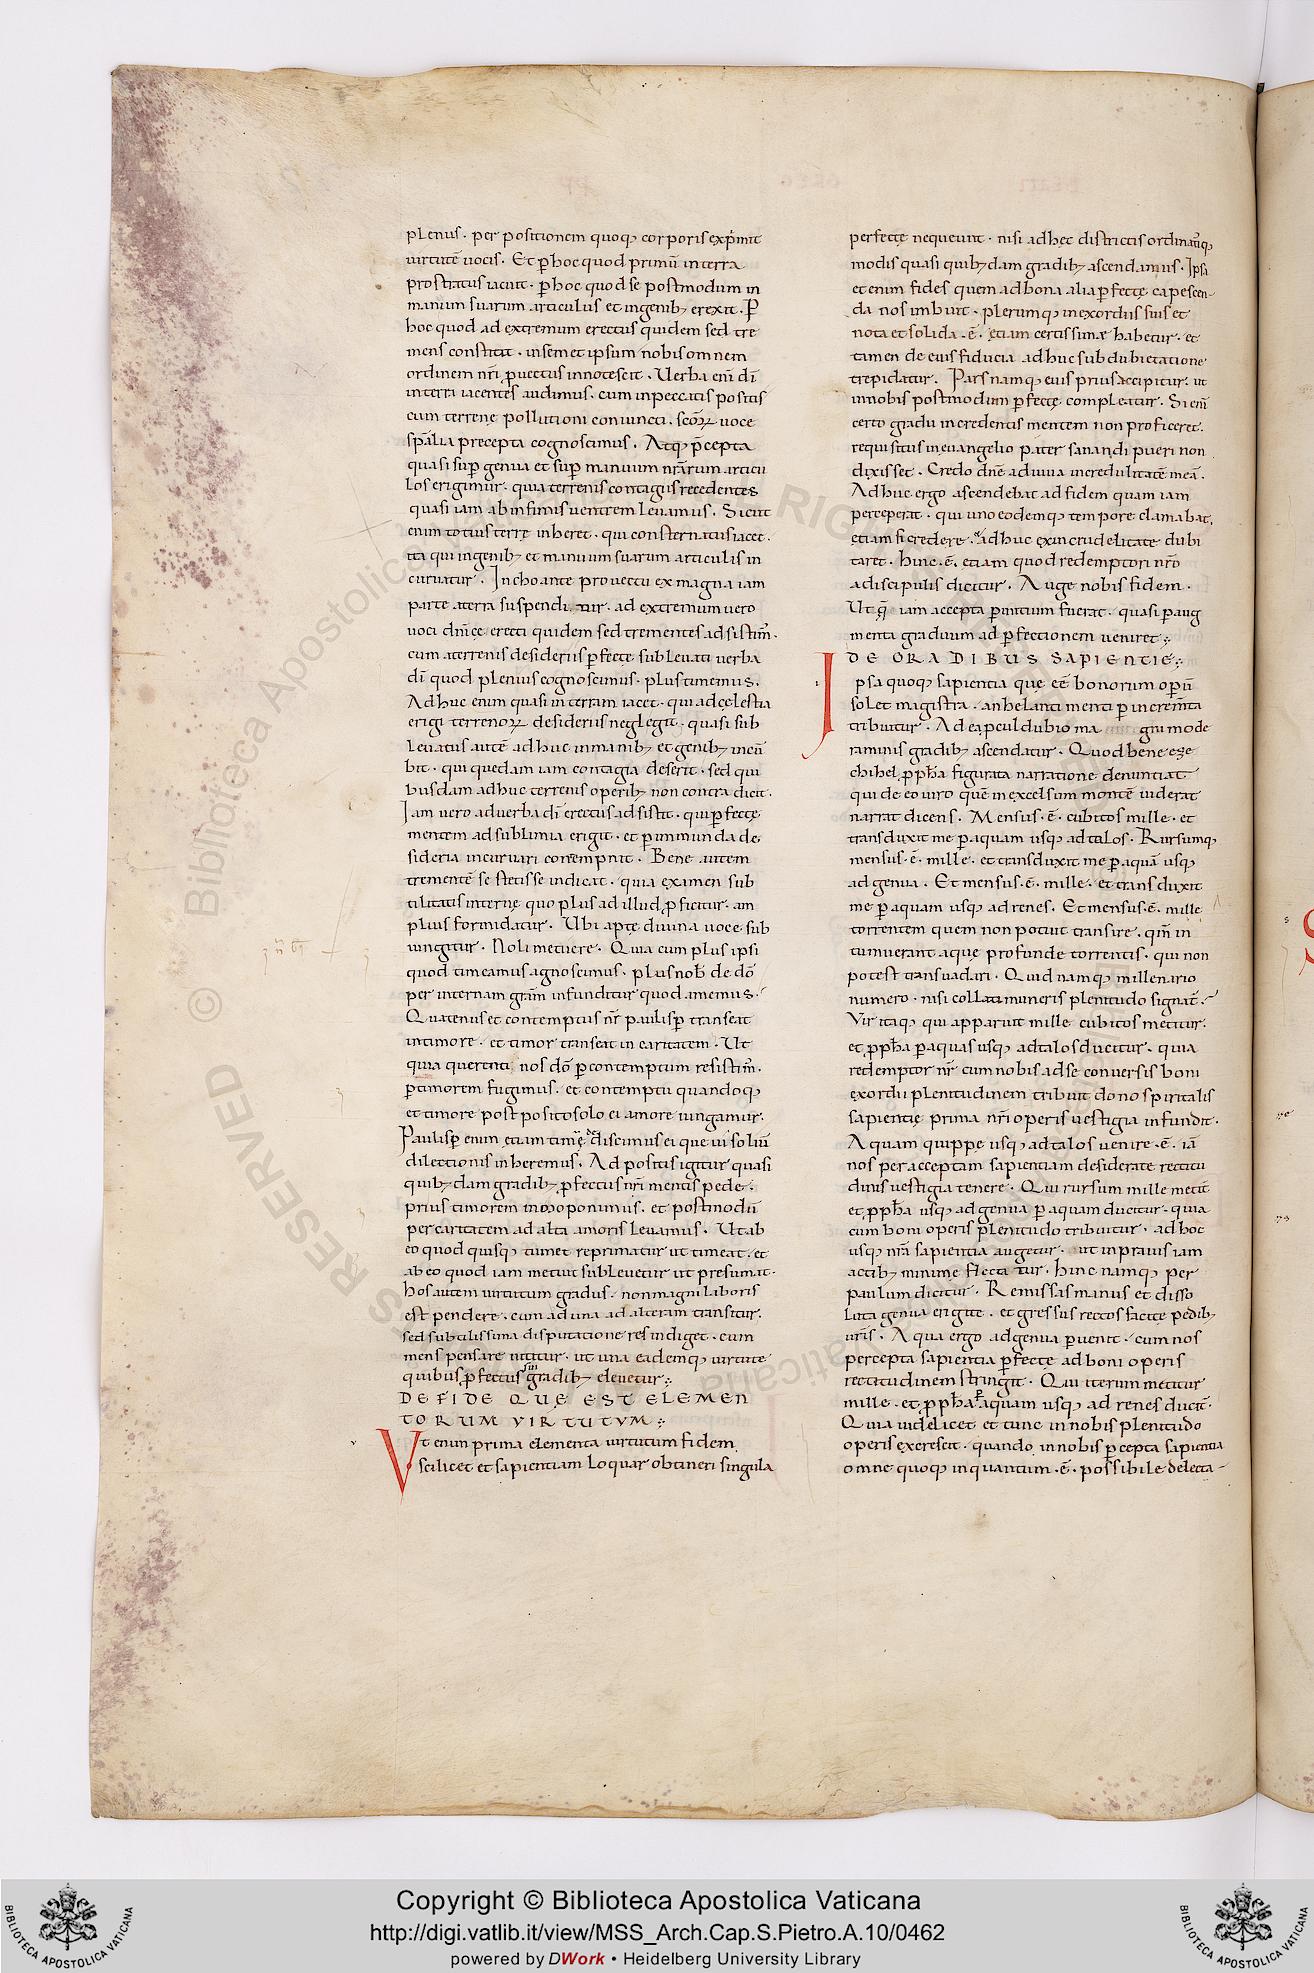 plenus · per positionem quoq; corporis exp̄mit
uirtutē uocis · Et p̄ hoc quod primū in terra
prostratus iacuit · p̄ hoc quod se postmodum in
manuum suarum articulus et in genib; erexit · P̄
hoc quod ad extremum erectus quidem sed tre
mens constitit · insemet ipsum nobis omnem
ordinem nr̄i p̄uectus innotescit · Uerba eni di
in terra iacentes audimus · cum in peccatis positis
cum terrene pollutioni coniuncti · scōꝝ uoce
sp̄alia precepta cognoscimus · Atq; p̄cepta
quasi sup̄ genua et sup̄ manuum nr̄arum articu
los erigimur · quia terrenis contagiis recedentes
quasi iam ab infimis uentrem leuamus · Sicut
enim totius terrę inheret · qui consternatus iacet ·
ita qui in genib; et manuum suarum articulis in
curuatur · Inchoante prouectu ex magna iam
parte a terra suspenditur · ad extremum uero
uoci dn̄icę erecti quidem sed trementes adsistim̄ ·
cum a terrenis desideriis p̄fectę subleuati uerba
di quod plenius cognoscimus · plus timemus ·
Adhuc enim quasi in terram iacet · qui ad celestia
erigi terrenoꝝ desideriis neglegit · quasi sub
leuatus autē adhuc in manib; et genib; incū
bit · qui quedam iam contagia deserit · sed qui
busdam adhuc terrenis operib; non contra dicit ·
Iam uero ad uerba di erectus adsistit · qui p̄fectę
mentem ad sublimia erigit · et p̄ inmunda de
sideria incuruari contempnit · Bene autem
trementē se stetisse indicat · quia examen sub
tilitatis internę quo plus ad illud p̄ficitur · am
plius formidatur · Ubi aptę diuina uoce sub
iungitur · Noli metuere · Quia cum plus ipsi
quod timeamus agnoscimus · plus nob̄ de dō
per internam gram̄ infunditur quod amemus ·
Quatenus et contemptus nr̄ paulisp̄ transeat
in timore · et timor transeat in caritatem · Ut
quia querenti nos dō p̄ contemptum resistim̄ ·
p̄ timorem fugimus · et contemptu quandoq;
et timore post posito solo ei amore iungamur ·
Paulisp̄ enim etiam timerę discimus ei que ui solius
dilectionis inheremus · Ad positis igitur quasi
quib; dam gradib; p̄fectus nr̄i mentis pede ·
prius timorem in imo ponimus · et postmodū
per caritatem ad alta amoris leuamus · Ut ab
eo quod quisq; tumet reprimatur ut timeat · et
ab eo quod iam metuit subleuetur ut presumat ·
hos autem uirtutum gradus · non magni laboris
est pendere · cum ad una ad alteram transitur ·
sed subtilissima disputatione res indiget · cum
mens pensare nititur · ut una eademq; uirtute
quibus p̄fectus sui gradib; eleuetur
DE FIDE QUE EST ELEMEN
TORUM VIRTUTVM
Vt enim prima elementa uirtutum fidem
scilicet et sapientiam loquar obtineri singula
perfectę nequeunt · nisi ad hęc districtis ordinatiq;
modis quasi quib; dam gradib; ascendamus · Ipsa
etenim fides quem ad bona alia p̄fectę capescen-
da nos imbuit · plerumq; in exordiis suis et
nota et solida · ē · etiam certissimæ habetur · et
tamen de eius fiducia adhuc sub dubietatione
trepidatur · Pars namq; eius prius accipitur · ut
in nobis postmodum p̄fectę compleatur · Si eni
certo gradu in credentis mentem non proficeret ·
requisitus in euangelio pater sanandi pueri non
dixisset · Credo dn̄e adiuua incredulitatē meā ·
Adhuc ergo ascendebat ad fidem quam iam
perceperat · qui uno eodemq; tempore clamabat,
etiam si credere · adhuc ex incrudelitate dubi
taret · hinc · ē · etiam quod redemptori nr̄o
a discipulis dicitur · Auge nobis fidem ·
Ut q̄ iam accepta p̄ initium fuerat · quasi p̄ aug
menta graduum ad p̄fectionem ueniret
DE GRADIBUS SAPIENTIE
Ipsa quoq; sapientia que eē bonorum operū
solet magistra · anhelanti menti p̄ incrementa
tribuitur · Ad eā pcul dubio magni mode
raminis gradib; ascendatur · Quod bene eze
chihel p̄ph̄a figurata narratione denuntiat
qui de eo uiro quē in excelsum montē uiderat
narrat dicens · Mensus · ē · cubitos mille · et
transduxit me p̄ aquam usq; ad talos · Rursumq;
mensus · ē · mille · et transduxit me p̄ aquā usq;
ad genua · Et mensus · ē · mille · et transduxit
me p̄ aquam usq; ad renes · Et mensus · ē · mille
torrentem quem non potuit transire · qm̄ in
tumuerant aquę profunde torrentis · qui non
potest transuadari · Quid namq; millenario
numero · nisi collati muneris plenitudo signat̄ ·
Vir itaq; qui apparuit mille cubitos metitur ·
et p̄ph̄a p̄ aquas usq; ad talos ducitur · quia
redemptor nr̄ cum nobis ad se conuersis boni
exordii plenitudinem tribuit dono spiritalis
sapientię prima nr̄i operis uestigia infundit ·
Aquam quippe usq; ad talos uenire · ē · iā
nos per acceptam sapientiam desideratę rectitu
dinis uestigia tenere · Qui rursum mille metit̄
et p̄ph̄a usq; ad genua p̄ aquam ducitur · quia
cum boni operis plenitudo tribuitur · ad hoc
usq; nr̄a sapientia augetur · ut in prauis iam
actib; minime flectatur · hinc namq; per
paulum dicitur · Remissas manus et disso
luta genua erigite · et gressus rectos facite pedib;
ur̄is · Aqua ergo ad genua p̄uenit · cum nos
percepta sapientia p̄fectę ad boni operis
rectitudinem stringit · Qui iterum metitur
mille · et p̄ph̄a p̄ aquam usq; ad renes ducit̄ ·
Quia uidelicet et tunc in nobis plenitudo
operis excrescit · quando in nobis p̄cepta sapientia
omne quoq; inquantum · ē · possibile delecta-
Copyright © Biblioteca Apostolica Vaticana
http://digi.vatlib.it/view/MSS_Arch.Cap.S.Pietro.A.10/0462
powered by DWork • Heidelberg University Library